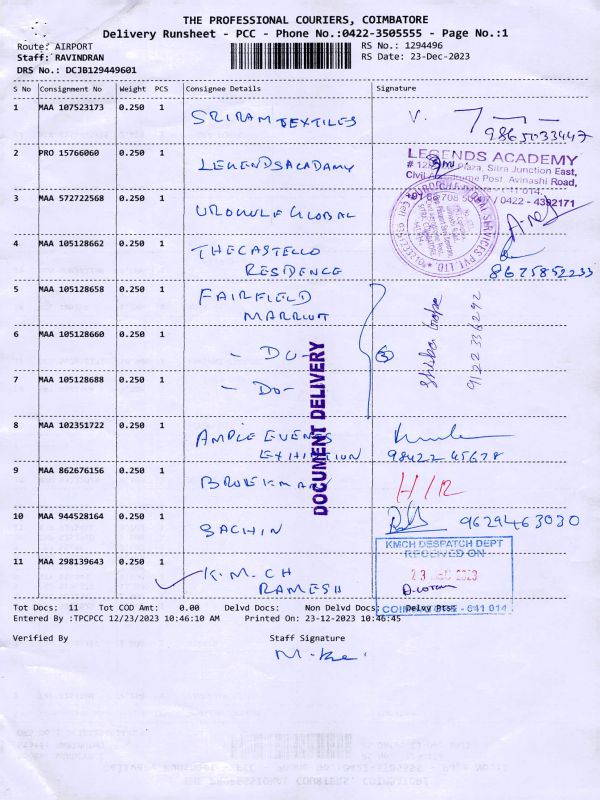 THE PROFESSIONAL COURIERS, COIMBATORE
Delivery Runsheet - PCC - Phone No.:0422-3505555 - Page No.:1
Route: AIRPORT RS No.: 1294496
Staff: RAVINDRAN RS Date: 23-Dec-2023
DRS No.: DCJB129449601
S No Consignment No Weight PCS Consignee Details Signature
1 MAA 107523173 0.250 1 SRIRAM TEXTILES V. 9865033447
2 PRO 15766060 0.250 1 LEGENDSACADAMY LEGENDS ACADEMY
Plaza, Sitra Junction East,
Post, Avinashi Road,
3 MAA 572722568 0.250 1 GLOBAL / 0422 - 4392171
4 MAA 105128662 0.250 1 THECASTELLO
RESIDENCE 8675852233
5 MAA 105128658 0.250 1 FAIRFIELD
MARRIOT
6 MAA 105128660 0.250 1 - DO - 3 9122336292
7 MAA 105128688 0.250 1 - DO -
DOCUMENT DELIVERY
8 MAA 102351722 0.250 1 AMPLE EVENTS
EXHIBITION 98422 45678
9 MAA 862676156 0.250 1 H/R
10 MAA 944528164 0.250 1 SACHIN 9629463030
11 MAA 298139643 0.250 1 K.M.CH
RAMESH
KMCH DESPATCH DEPT
RECEIVED ON
23 DEC 2023
COIMBATORE - 641 014
Tot Docs: 11 Tot COD Amt: 0.00 Delvd Docs: Non Delvd Docs: Delvy Pts:
Entered By :TPCPCC 12/23/2023 10:46:10 AM Printed On: 23-12-2023 10:46:45
Verified By Staff Signature